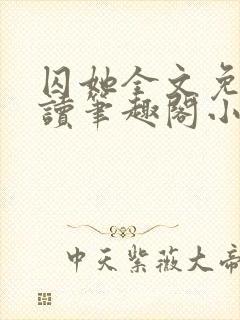 囚她全文免
讀筆趣閣小
中天紫薇大帝